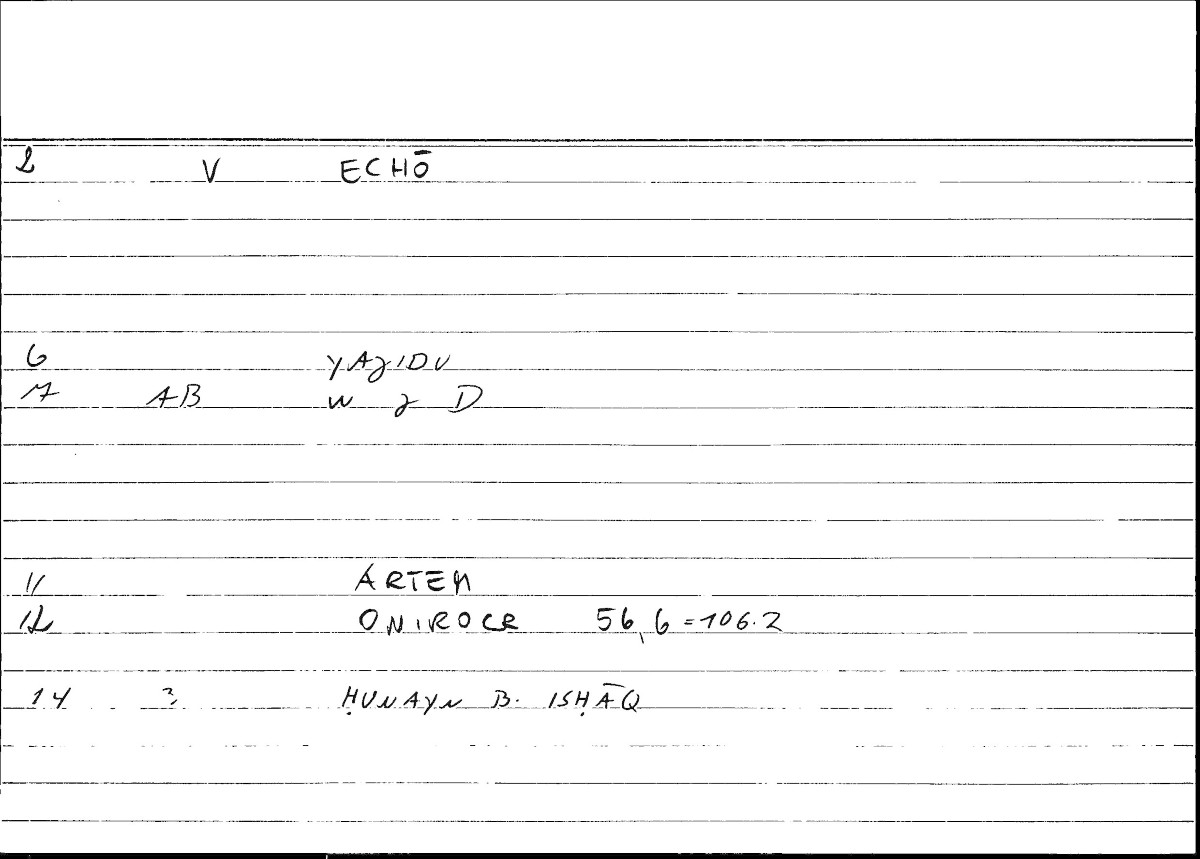 2 V ECHŌ
6 YAJIDU
7 AB W J D
11 ARTEM
12 ONIROCR 56,6=106.2
14 ? ḤUNAYN B. ISḤĀQ